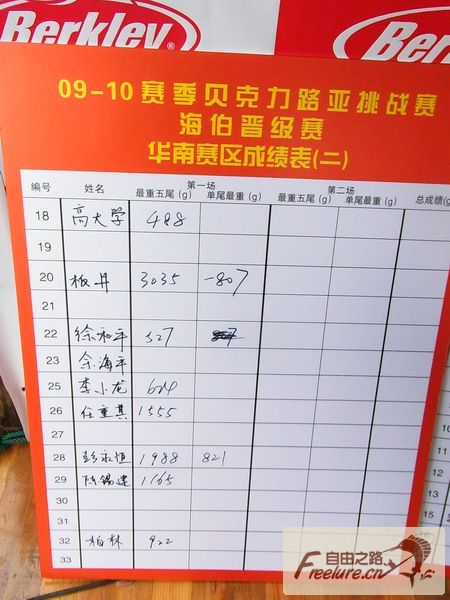 Berkley
Berkley
09-10赛季贝克力路亚挑战赛
海伯晋级赛
华南赛区成绩表(二)
编号 姓名 第一场 第二场 总成绩(g
最重五尾(g) 单尾最重(g) 最重五尾(g) 单尾最重(g)
18 高大学 488
19
20 板井 3035 -807
21
22 徐和平 527
23 余海平
25 李小龙 604
26 任重其 1555
27
28 彭永恒 1988 821
29 陈锡建 1165
30
31
32 柏林 922
33
自由之路
Freelure.cn